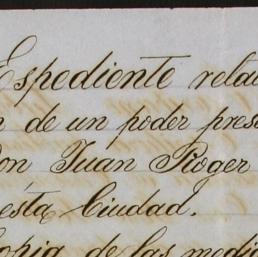 Espediente rela
n de un poder pres
Don Juan Roger
esta Ciudad.
Copia de las medi